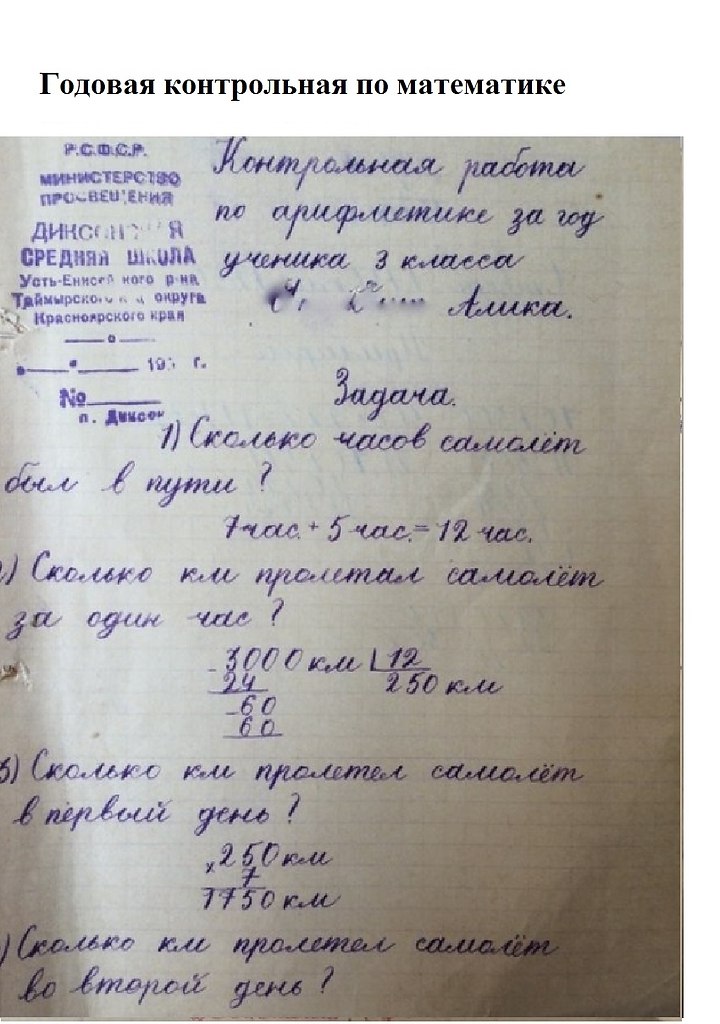 Годовая контрольная по математике
Р.С.Ф.С.Р.
МИНИСТЕРСТВО
ПРОСВЕЩЕНИЯ
СРЕДНЯЯ ШКОЛА
Усть-Енисейского р-на
Таймырского округа
Красноярского края
195 г.
№
п. Диксон
Контрольная работа
по арифметике за год
ученика 3 класса
Алика.
Задача.
1) Сколько часов самолёт
был в пути?
7 час. + 5 час. = 12 час.
2) Сколько км пролетал самолёт
за один час?
3000 км 12
24 250 км
60
60
3) Сколько км пролетел самолёт
в первый день?
250 км
х 7
1750 км
) Сколько км пролетел самолёт
во второй день?